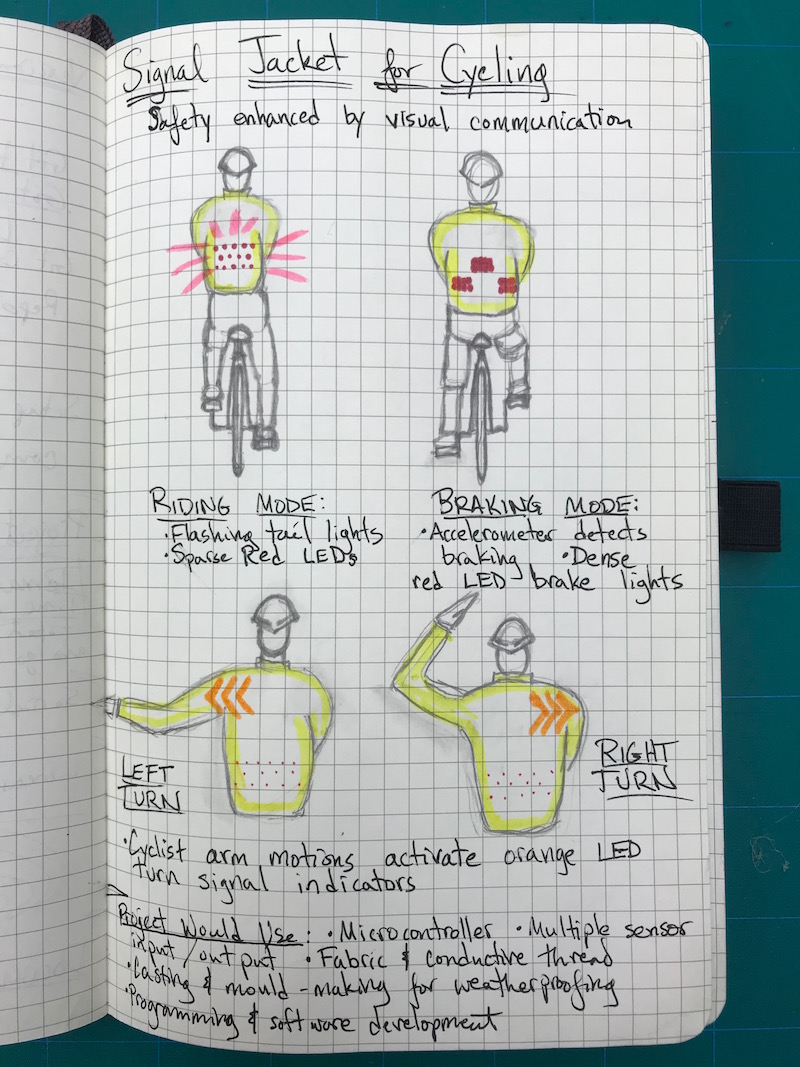 Signal Jacket for Cycling
Safety enhanced by visual communication
RIDING MODE:
•Flashing tail lights
•Sparse Red LEDs
BRAKING MODE:
•Accelerometer detects
braking •Dense
red LED brake lights
LEFT
TURN
RIGHT
TURN
•Cyclist arm motions activate orange LED
turn signal indicators
Project Would Use: •Microcontroller •Multiple sensor
input/output •Fabric & conductive thread
•Casting & mould-making for weatherproofing
•Programming & software development